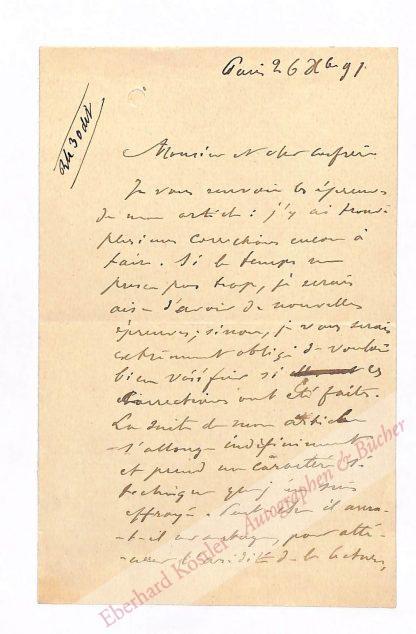 Paris 26 Xbre 91.
Monsieur et cher confrère
Je vous renvoie les épreuves
de mon article : j'y ai trouvé
plusieurs corrections encore à
faire. Si le temps ne
presse pas trop, je serais
aise d'avoir de nouvelles
épreuves ; sinon, je vous serais
extrêmement obligé de vouloir
bien vérifier si les
corrections ont été faites.
La suite de mon article
s'allonge indéfiniment
et prend un caractère si
technique que j'en suis
effrayé. Peut-être il aura-
-t-il avantage, pour atté-
-nuer l'aridité de la lecture,
Eberhard Köstler Autographen & Bücher